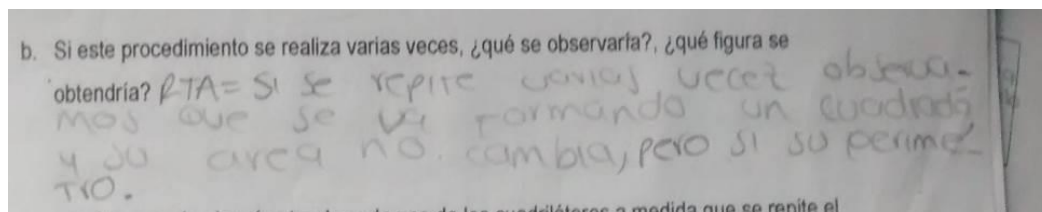 b. Si este procedimiento se realiza varias veces, ¿qué se observaría?, ¿qué figura se
obtendría? RTA= SI se repite varias vecet observa-
mos que se va formando un cuadrado
y su area no. cambia, pero si su perime-
TrO.
a medida que se repite el